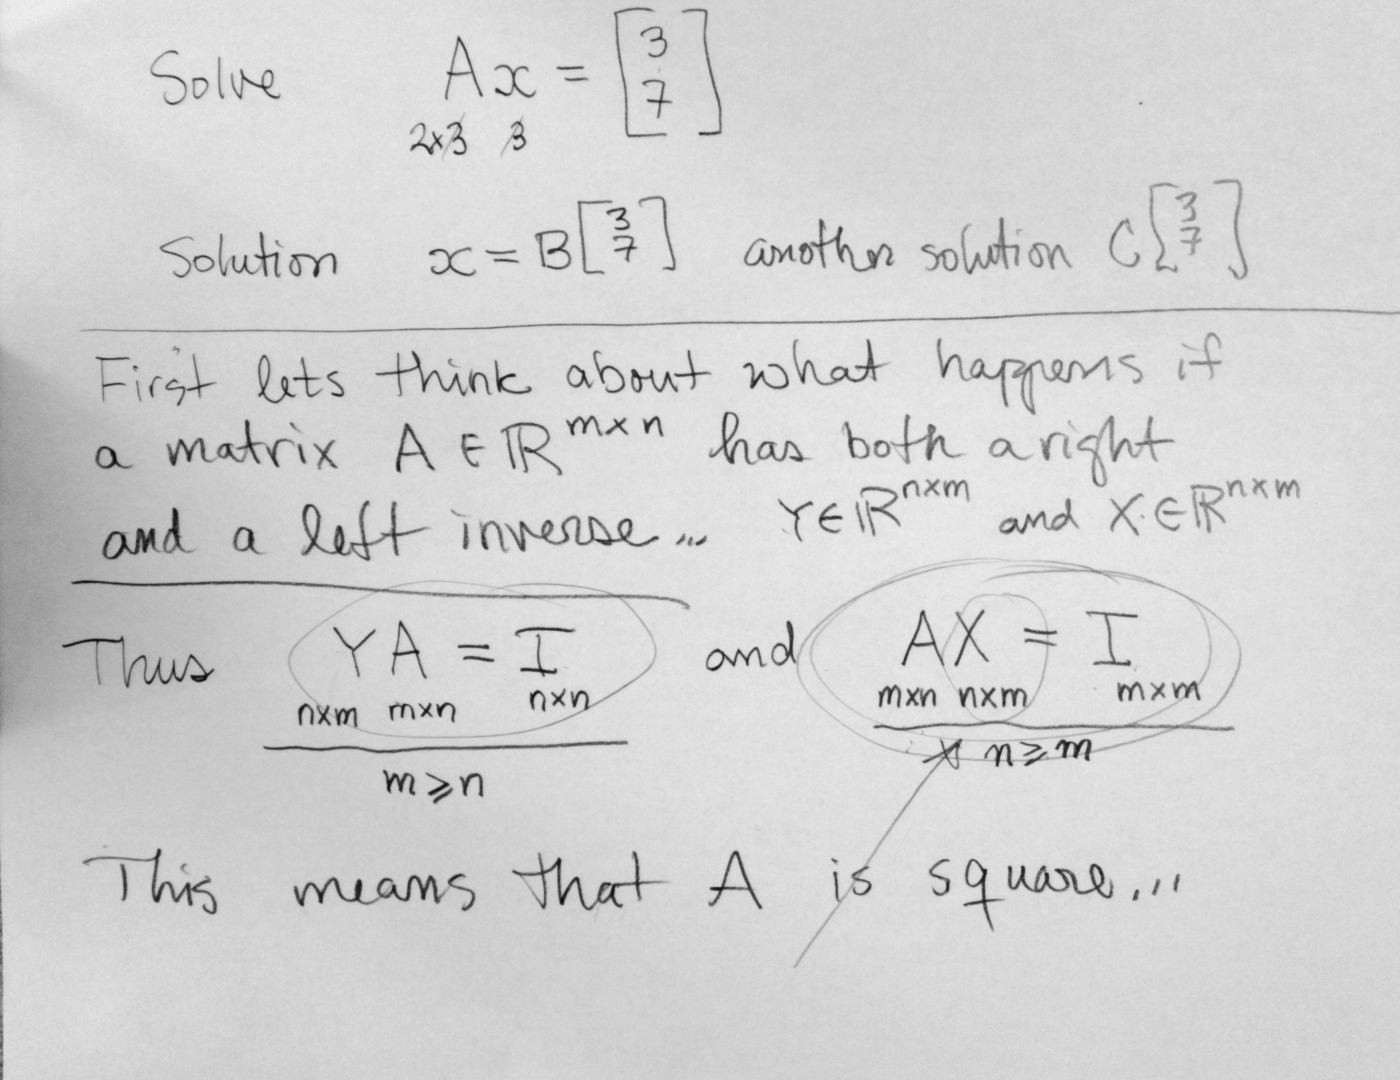 Solve Ax = [3
7]
2×3 3
Solution x = B[3
7] another solution C[3
7]
First lets think about what happens if
a matrix A ∈ ℝ^{m×n} has both a right
and a left inverse... Y∈ℝ^{n×m} and X∈ℝ^{n×m}
Thus YA = I and AX = I
n×m m×n n×n m×n n×m m×m
m ≥ n n ≥ m
This means that A is square...